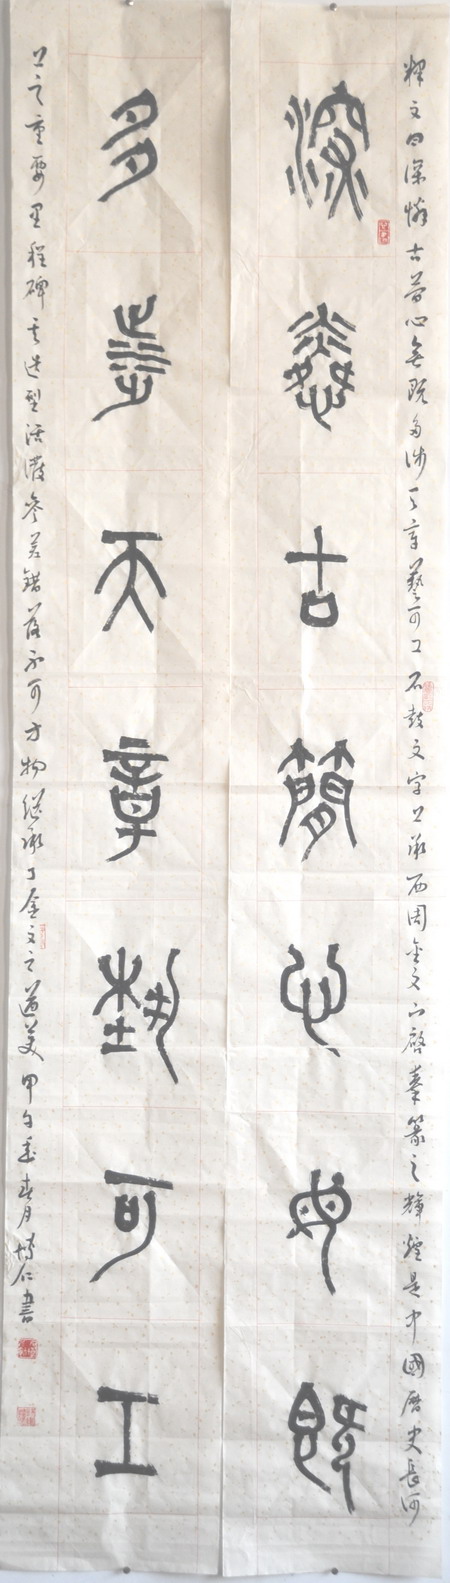 釋文曰深憐古簡心無既多涉天章藝可工 石鼓文字上承西周金文下啟秦篆之輝煌是中國歷史長河
深憐古簡心毋既
多涉天章藝可工
上之重要里程碑其造型活潑參差錯落不可方物繼承了金文之遒美甲午春月博仁書